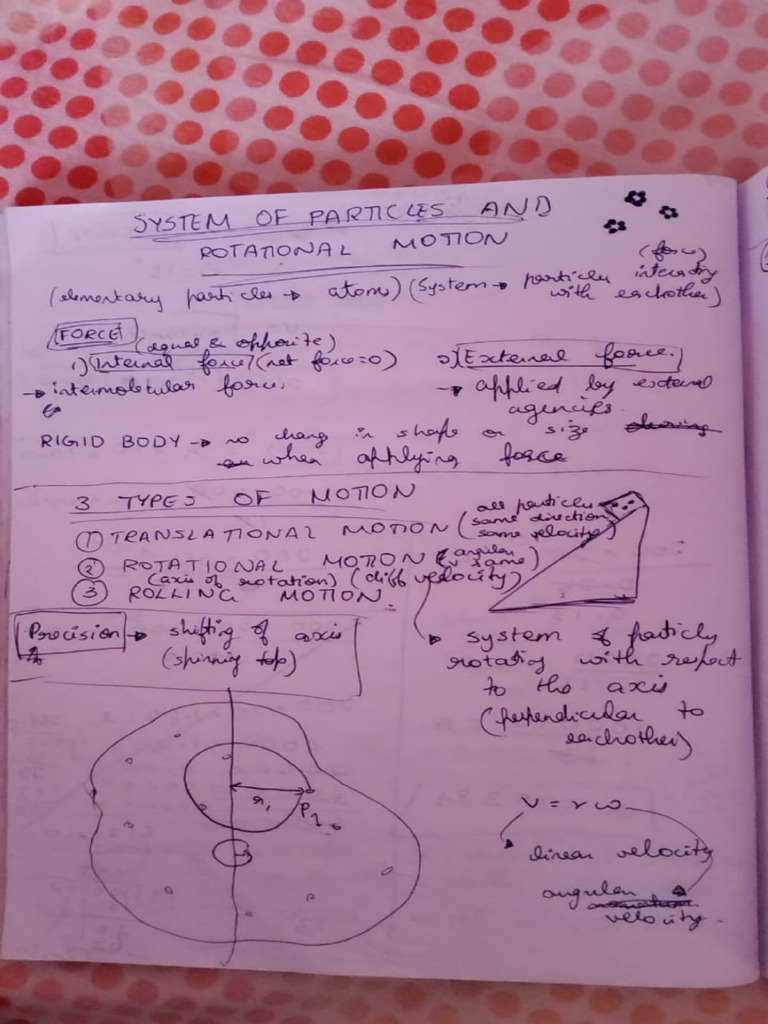 SYSTEM OF PARTICLES AND
ROTATIONAL MOTION
(force)
(elementary particles → atom) (System → particles interacting
with eachother)
FORCE (equal & opposite)
1) Internal force (net force=0)
→ intermolecular force
2) External force
→ applied by external
agencies.
RIGID BODY → no change in shape or size
when applying force
3 TYPES OF MOTION
① TRANSLATIONAL MOTION (all particles
same direction
same velocity)
② ROTATIONAL MOTION (angular
v same)
(axis of rotation) (diff velocity)
③ ROLLING MOTION
Precision → shifting of axis
(spinning top)
→ system of particles
rotating with respect
to the axis
(perpendicular to
eachother)
r₁
P₁
V = rω
linear velocity
angular
velocity